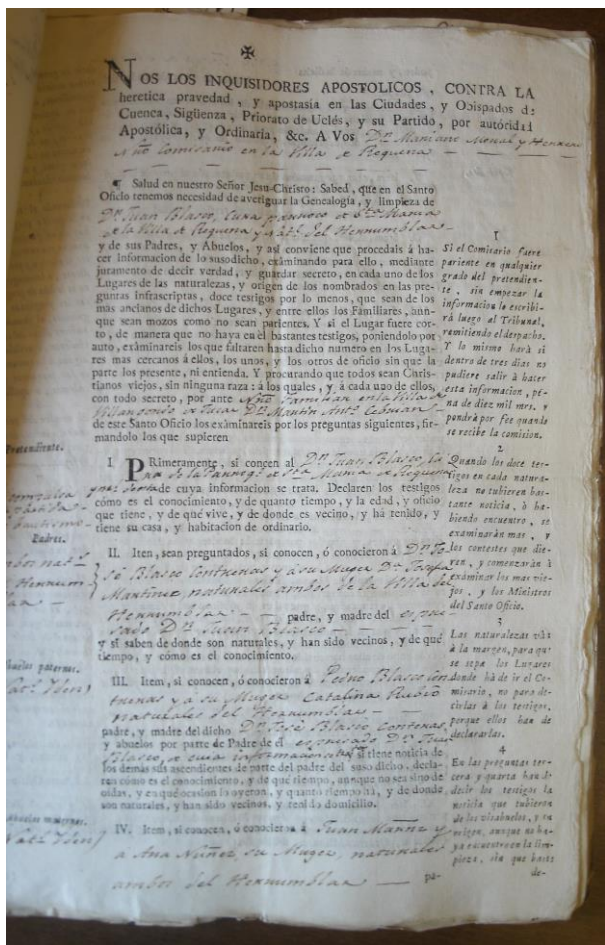 ✠
NOS LOS INQUISIDORES APOSTOLICOS, CONTRA LA
heretica pravedad, y apostasía en las Ciudades, y Obispados de
Cuenca, Sigüenza, Priorato de Uclés, y su Partido, por autóridad
Apostólica, y Ordinaria, &c. A Vos Dn. Mariano Monal y Herrero
Nño Comisario en la Villa de Requena
¶ Salud en nuestro Señor Jesu-Christo: Sabed, que en el Santo
Oficio tenemos necesidad de averiguar la Genealogía, y limpieza de
Dn. Juan Blasco, Cura párroco de Sta. Maria
de la Villa de Requena y natl. del Herrumblar
y de sus Padres, y Abuelos, y así conviene que procedais á ha-
cer informacion de lo susodicho, exâminando para ello, mediante
juramento de decir verdad, y guardar secreto, en cada uno de los
Lugares de las naturalezas, y origen de los nombrados en las pre-
guntas infrascriptas, doce testigos por lo menos, que sean de los
mas ancianos de dichos Lugares, y entre ellos los Familiares, aun-
que sean mozos como no sean parientes. Y si el Lugar fuere cor-
to, de manera que no haya en él bastantes testigos, poniendolo por
auto, exâmineis los que faltaren hasta dicho numero en los Luga-
res mas cercanos á ellos, los unos, y los otros de oficio sin que la
parte los presente, ni entienda. Y procurando que todos sean Chris-
tianos viejos, sin ninguna raza: á los quales, y á cada uno de ellos,
con todo secreto, por ante Nño Familiar en la Villa de
Villargordo de Jucar Dn. Martin Anto.
de este Santo Oficio los exâminareis por las preguntas siguientes, fir-
mandolo los que supieren
I PRimeramente, si concen al Dn. Juan Blasco, Cu
ra de la Parroql. de Sta. Maria de Requena
de cuya informacion se trata. Declaren los testigos
cómo es el conocimiento, y de quanto tiempo, y la edad, y oficio
que tiene, y de qué vive, y de donde es vecino, y há tenido, y
tiene su casa, y habitacion de ordinario.
II. Iten, sean preguntados, si conocen, ó conocieron á Dn. Jo
sé Blasco Contreras y á su Muger Da. Josefa
Martinez naturales ambos de la Villa del
Herrumblar padre, y madre del espre
sado Dn. Juan Blasco
y si saben de donde son naturales, y han sido vecinos, y de qué
tiempo, y cómo es el conocimiento.
III. Item, si conocen, ó conocieron á Pedro Blasco Con
treras y a su Muger Catalina Rubio
naturales del Herrumblar
padre, y madre del dicho Dn. José Blasco Contreras
y abuelos por parte de Padre de el espresado Dn. Juan
Blasco, de cuia informacion si tiene noticia de
los demás sus ascendientes de parte del padre del suso dicho, decla-
ren cómo es el conocimiento, y de qué tiempo, aunque no sea sino de
oídas, y en qué ocasion lo oyeron, y quanto tiempo há, y de donde
son naturales, y han sido vecinos, y tenido domicilio.
IV. Item, si conocen, ó conocieron á Juan Mañez y
a Ana Nuñez su Muger, naturales
ambos del Herrumblar pa-
1
Si el Comisario fuere
pariente en qualquier
grado del pretendien-
te, sin empezar la
informacion lo escribi-
rá luego al Tribunal,
remitiendo el despacho.
Y lo mismo hará si
dentro de tres dias no
pudiere salir á hacer
esta informacion, pé-
na de diez mil mrs. y
pondrá por fee quando
se recibe la comision.
2
Quando los doce tes-
tigos en cada natura-
leza no tubieren bas-
tante noticia, ò ha-
biendo encuentro, se
exâminarán mas, y
los contestes que die-
ren, y comenzarán à
exâminar los mas vie-
jos, y los Ministros
del Santo Oficio.
3
Las naturalezas ván
à la margen, para que
se sepa los Lugares
donde há de ir el Co-
misario, no para de-
cirlas à los testigos,
porque ellos han de
declararlas.
4
En las preguntas ter-
cera y quarta han de
decir los testigos la
noticia que tubieren
de los visabuelos, y su
origen, aunque no ha-
ya encuentro en la lim-
pieza, sin que baste
de-
Pretendiente.
Padres.
Abuelos paternos.
Natl. Yden
Abuelos maternos.
Natl. Yden